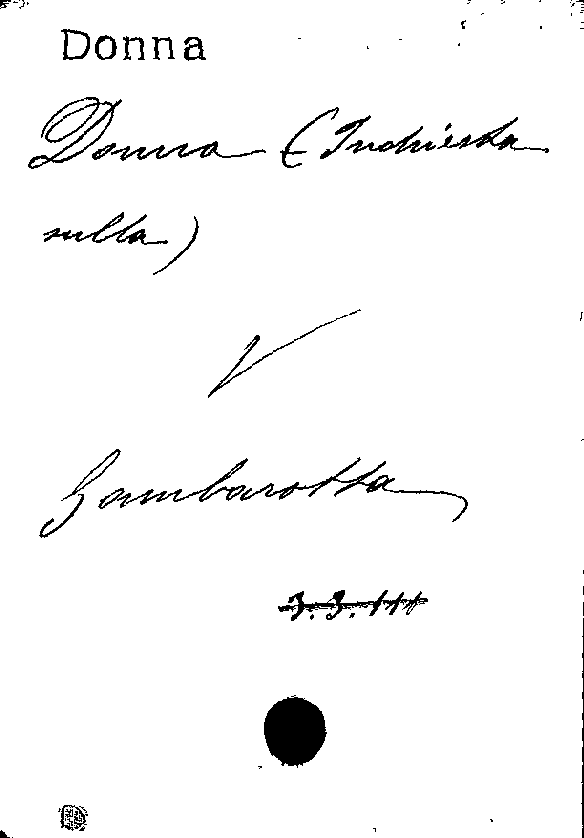 Donna
Donna (Inchiesta
sulla)
Gambarotta
3.3.